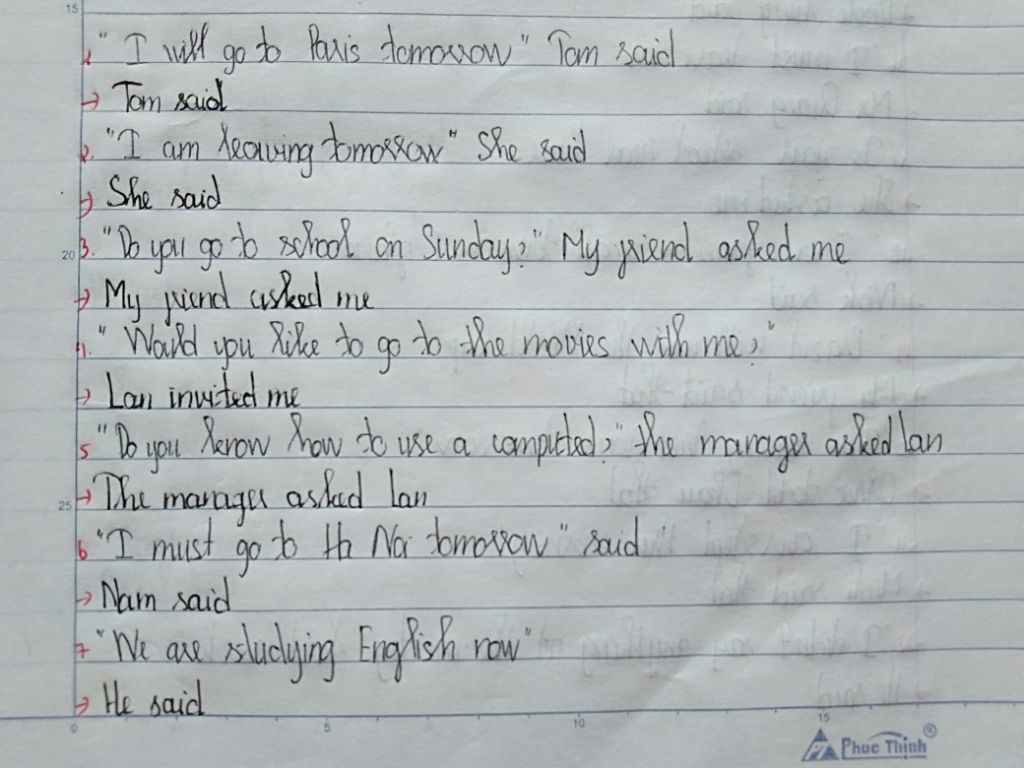 15
1. "I will go to Paris tomorrow" Tom said
→ Tom said
2. "I am leaving tomorrow" She said
→ She said
20 3. "Do you go to school on Sunday?" My friend asked me
→ My friend asked me
4. "Would you like to go to the movies with me?"
→ Lan invited me
5 "Do you know how to use a computed?" the manager asked lan
25 → The manager asked lan
6 "I must go to Ha Noi tomorrow" said
→ Nam said
7 "We are studying English now"
→ He said
0 5 10 15
Phuc Thinh ®